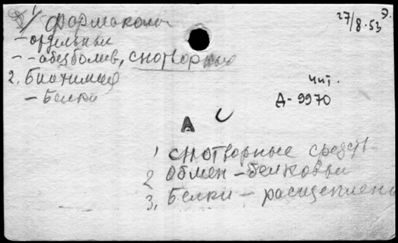 27/8-53
Э.
1/ Фармакол
- отдельный
- - обезболив, снотворные
2. Биохимия
- Белки
чит.
Д-9970
А
1 снотворные средств
2 Обмен - белковый
3, Белки - расщеплени